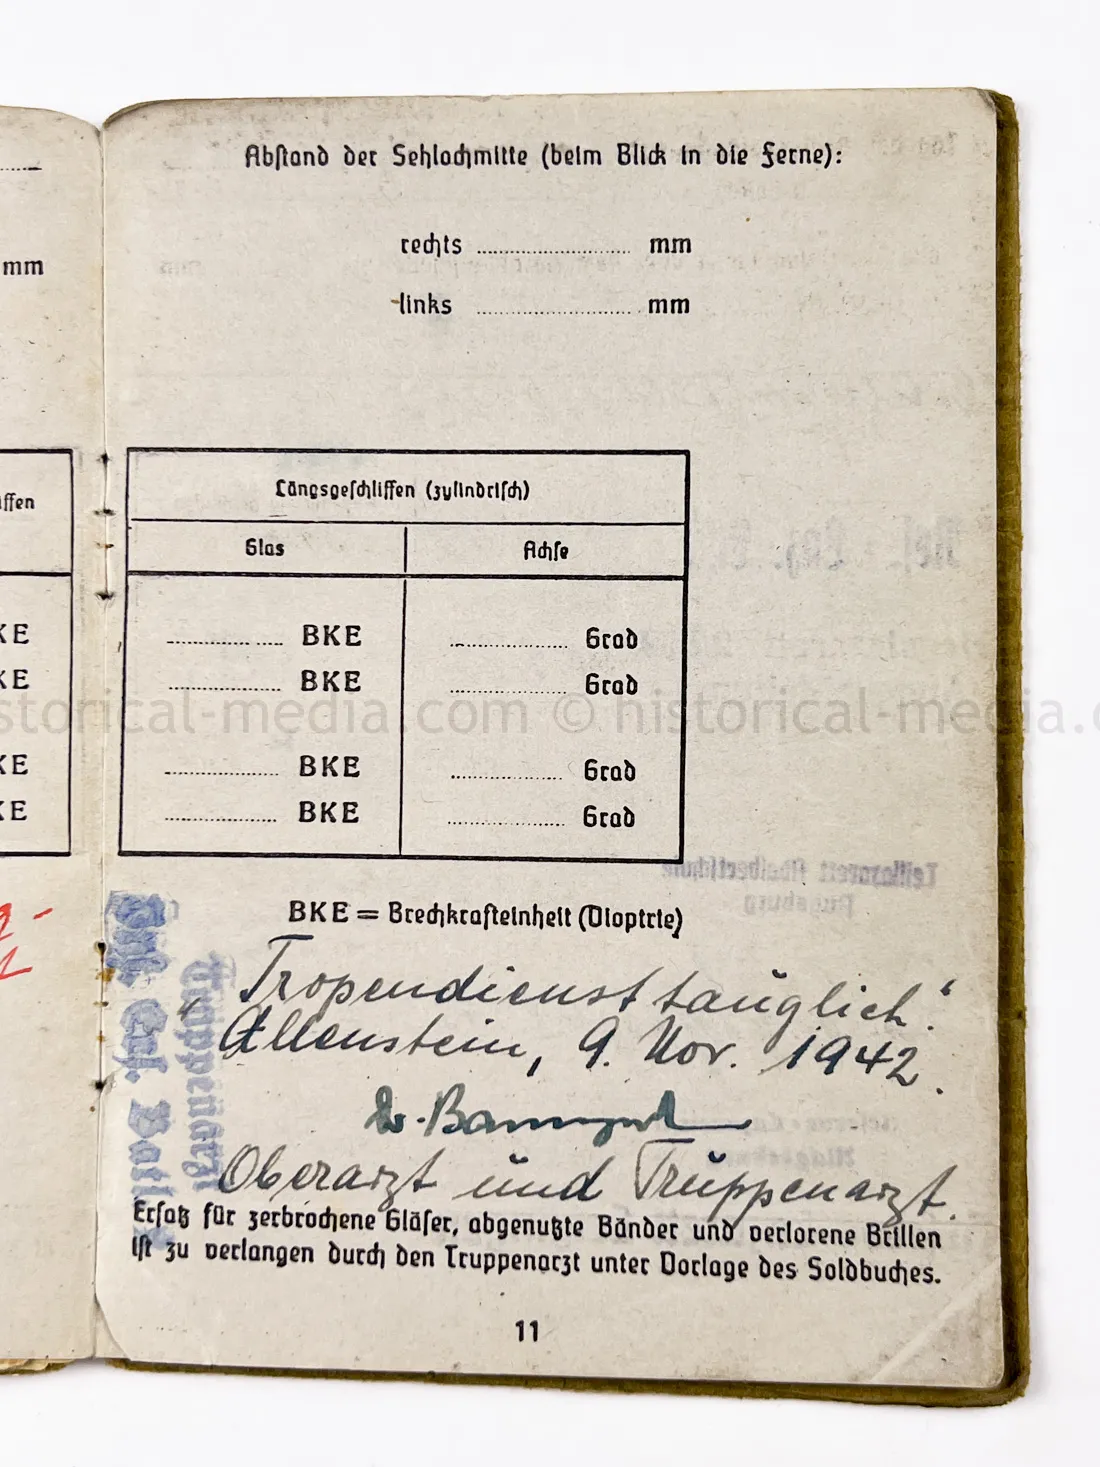 mm
Abstand der Sehlochmitte (beim Blick in die Ferne):
rechts ............ mm
links ............ mm
Längsgeschliffen (zylindrisch)
Glas Achse
............ BKE ............ Grad
............ BKE ............ Grad
............ BKE ............ Grad
............ BKE ............ Grad
historical-media.com © historical-media.c
BKE = Brechkrafteinheit (Dioptrie)
„Tropendienst tauglich.“
Allenstein, 9. Nov. 1942.
Oberarzt und Truppenarzt.
Truppenarzt
Ersatz für zerbrochene Gläser, abgenutzte Bänder und verlorene Brillen
ist zu verlangen durch den Truppenarzt unter Vorlage des Soldbuches.
11